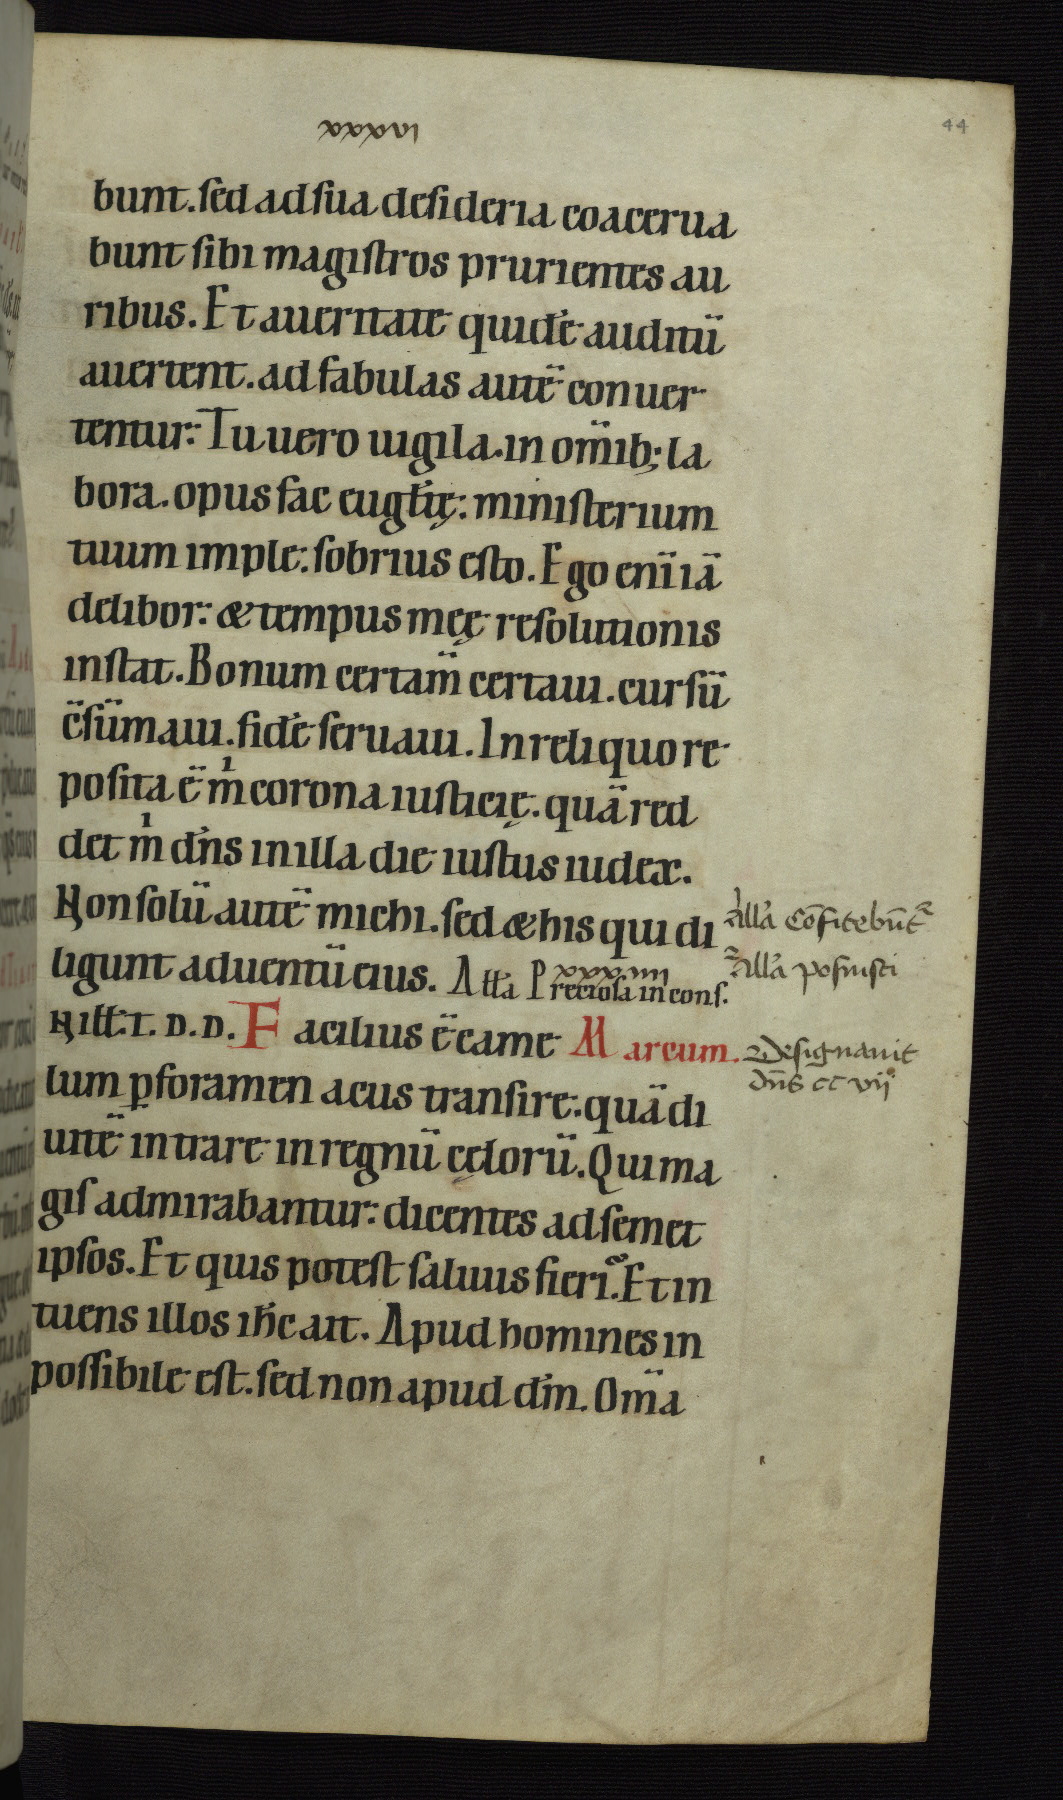 xxxxvi
44
bunt. sed ad sua desideria coacerua
bunt sibi magistros prurientes au
ribus. Et aueritate quidē auditū
auertent. ad fabulas autē conuer
tentur: Tu uero uigila. in om̄ib; la
bora. opus fac eugl̄ię: ministerium
tuum imple: sobrius esto. Ego enī iā
delibor: & tempus meę resolutionis
instat. Bonum certam̄ certaui. cursū
c̄sūmaui. fidē seruaui. In reliquo re
posita ē m̍ corona iusticię. quā red
det m̍ dn̄s in illa die iustus iudex.
Non solū autē michi. sed & his qui di
ligunt aduentū eius. All̄a Preciosa in cons.
xxxxiiii
N ill̄. T. D. D. Facilius ē came Marcum.
lum ꝑ foramen acus transire: quā di
uitē intrare in regnū cęlorū. Qui ma
gis admirabantur: dicentes ad semet
ipsos. Et quis potest saluus fieri. Et in
tuens illos ih̄c ait. Apud homines in
possibile est. sed non apud dm̄. Om̄a
all̄a Cōfitebūt
all̄a posuisti
Designauit
dn̄s cc vij